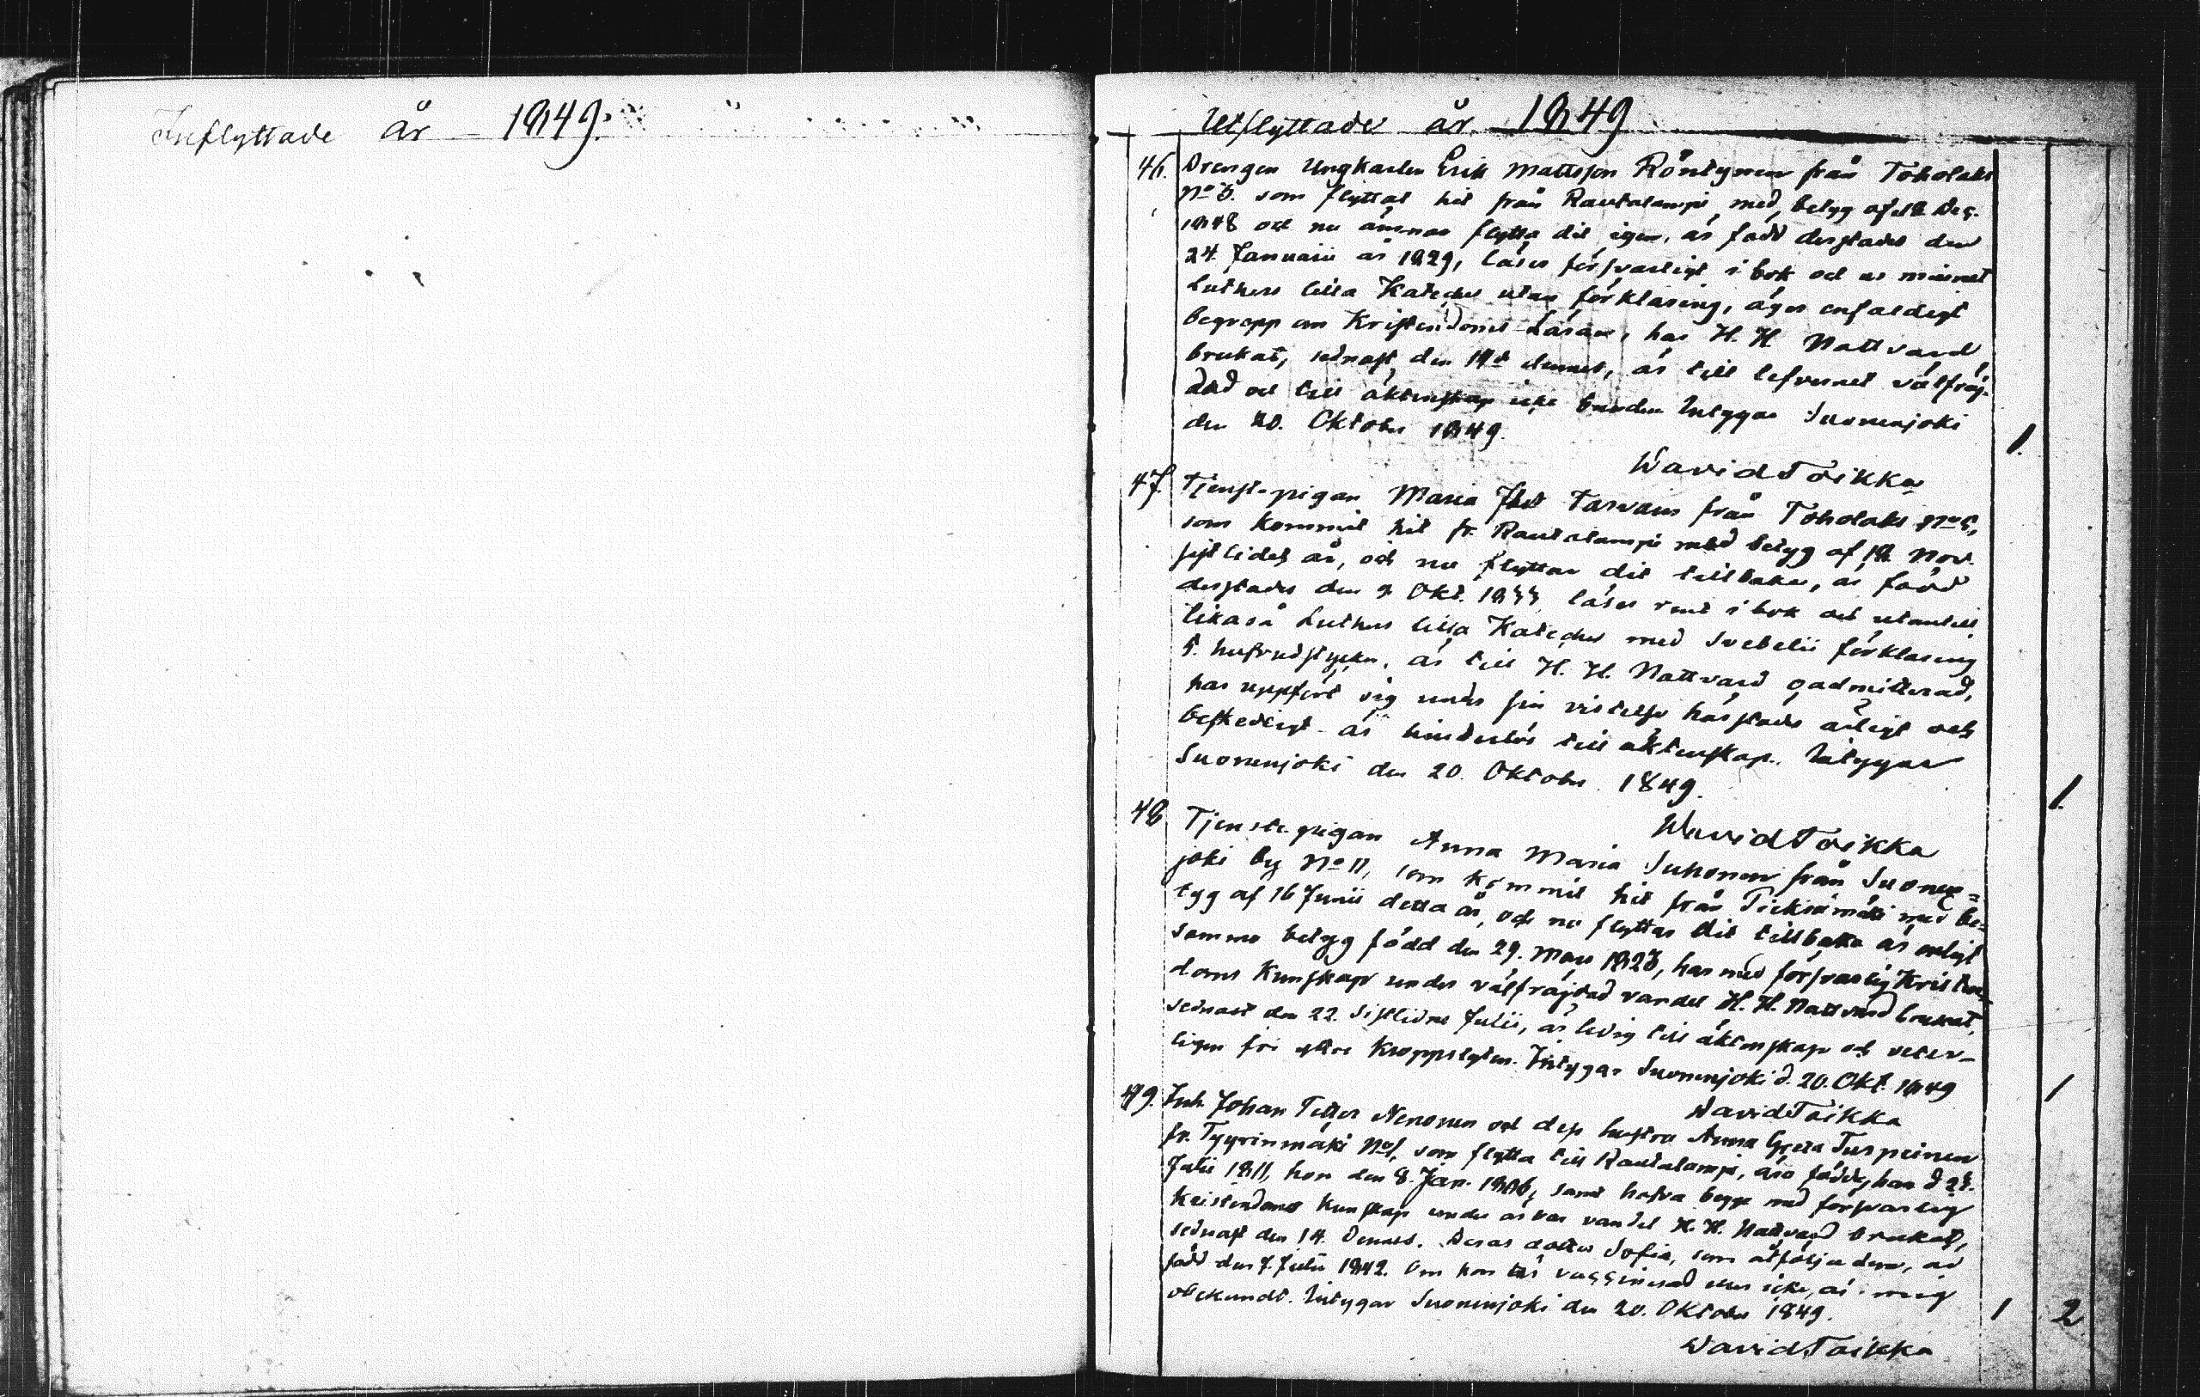 Inflyttade år 1849.
Utflyttade år 1849
46. Drengen Ungkarlen Erik Mattsson Röntynen från Toholaks
No 5. som flyttat hit från Rautalampi med betyg af d. 12 Dec.
1848 och nu ämnar flytta dit igen, är född derstädes den
24. Januarii år 1829, läser försvarligt i bok och ur minnet
Luthers lilla Kateches utan förklaring, äger enfaldigt
begrepp om Kristendoms Läran, har H. H. Nattvard
brukat, sednast den 14de dennes, är till lefvernet välfräj-
dad och till äktenskap icke bunden Intygar Suonenjoki
den 20. Oktober 1849. 1.
Wavid Toikka
47. Tjenste-pigan Maria Tarvain från Toholaks No 5,
som kommit hit fr. Rautalampi med betyg af 12 Nov.
sistlidet år, och nu flyttar dit tillbaka, är född
derstädes den 9 Okt. 1833, läser rent i bok och utantill
likaså Luthers lilla Kateches med Svebelii förklaring
5. hufvudstycken, är till H. H. Nattvard admitterad,
har uppfört sig under sin vistelse härstädes ärligt och
beskedligt är hinderlös till äktenskap. Intygar
Suonenjoki den 20. Oktober 1849. 1.
Wavid Toikka
48 Tjenste-pigan Anna Maria Suhonen från Suonen=
joki by No 11, som kommit hit från Pieksämäki med be-
tyg af 16 Junii detta år, och nu flyttar dit tillbaka är enligt
samma betyg född den 29. Mars 1823, har med försvarlig Kristen-
doms Kunskap under välfräjdad vandel H. H. Nattvard brukat,
sednast den 22. sistlidne Julii, är ledig till äktenskap och veter-
ligen fri yttre kroppslyten. Intygar Suonenjoki d. 20. Okt. 1849 1
David Toikka
49. Inh. Johan Petter Nenonen och dess hustru Anna Greta Turpeinen
fr. Tyyrinmäki No 1, som flytta till Rautalampi, äro födde, han d
Julii 1811, hon den 8. Jan. 1806, samt hafva begge med försvarlig
Kristendoms Kunskap under ärbar vandel H. H. Nattvard brukat,
sednast den 14. Dennes. Deras dotter Sofia, som åtfölja dem, är
född den 7. Julii 1842. Om hon är vaccinerad eller icke, är mig
obekandt. Intygar Suonenjoki den 20. Oktober 1849. 1 2
Wavid Toikka